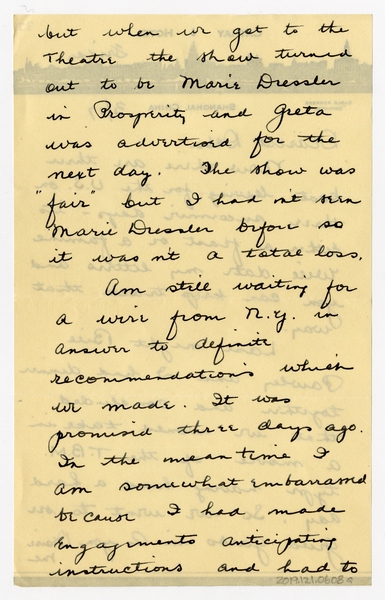 but when we got to the
Theatre the show turned
out to be Marie Dressler
in Prosperity and Greta
was advertised for the
next day. The show was
"fair" but I had n't seen
Marie Dressler before so
it was n't a total loss.
Am still waiting for
a wire from N.Y. in
answer to definite
recommendations which
we made. It was
promised three days ago.
In the meantime I
am somewhat embarrassed
because I had made
engagements anticipating
instructions and had to
2019.121.0608a